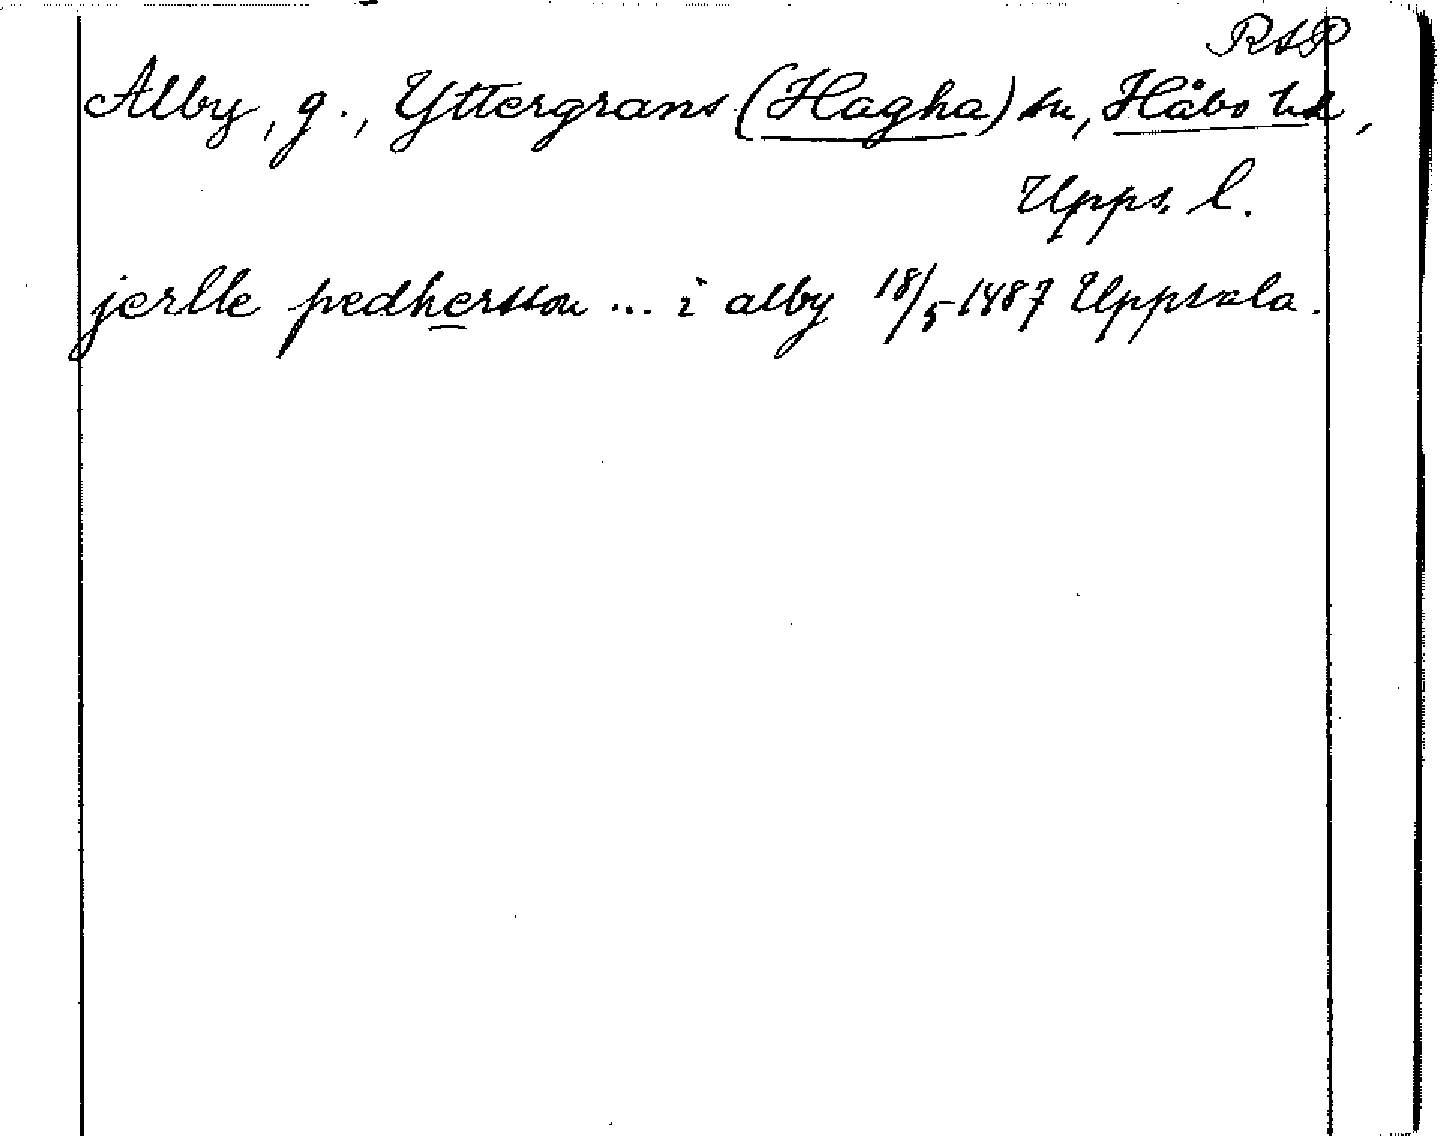 RAP
Alby, g., Yttergrans (Hagha) sn, Håbo hd,
Upps. l.
jerlle pedhersson ... i alby 18/5 1487 Uppsala.